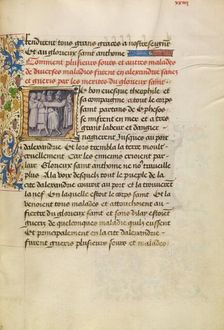 tendirent tous grans graces a nostre seignr
Et au glorieux saint anthoine
Comment plusieurs sours et autres malades
de diverses maladies furent en alexandrie sanez
et gueris par les merites du glorieux saint
Le bon evesque theophile et
sa compaignie atout le corps
saint partans de
se mistrent en mer et a tres
grant labeur et dangier
nagerent Jusques au port
dalexandrie. Et la terre moult
cruellement Car les ennemis crioient par
lair. Glorieux saint anthoine ne nous travaille
plus A la voix desquelz tout le pueple de la
cite dalexandrie couru au port et la trouverent
la nef En laquelle estoit le corps saint. Et la
venoient tous malades et attouchoient au
du glorieux saint et sons delay estoient
gueris de quelconques maladie quilz eussent
Et principalement en la cite dalexandrie
furent gueris plusieurs sours et malades